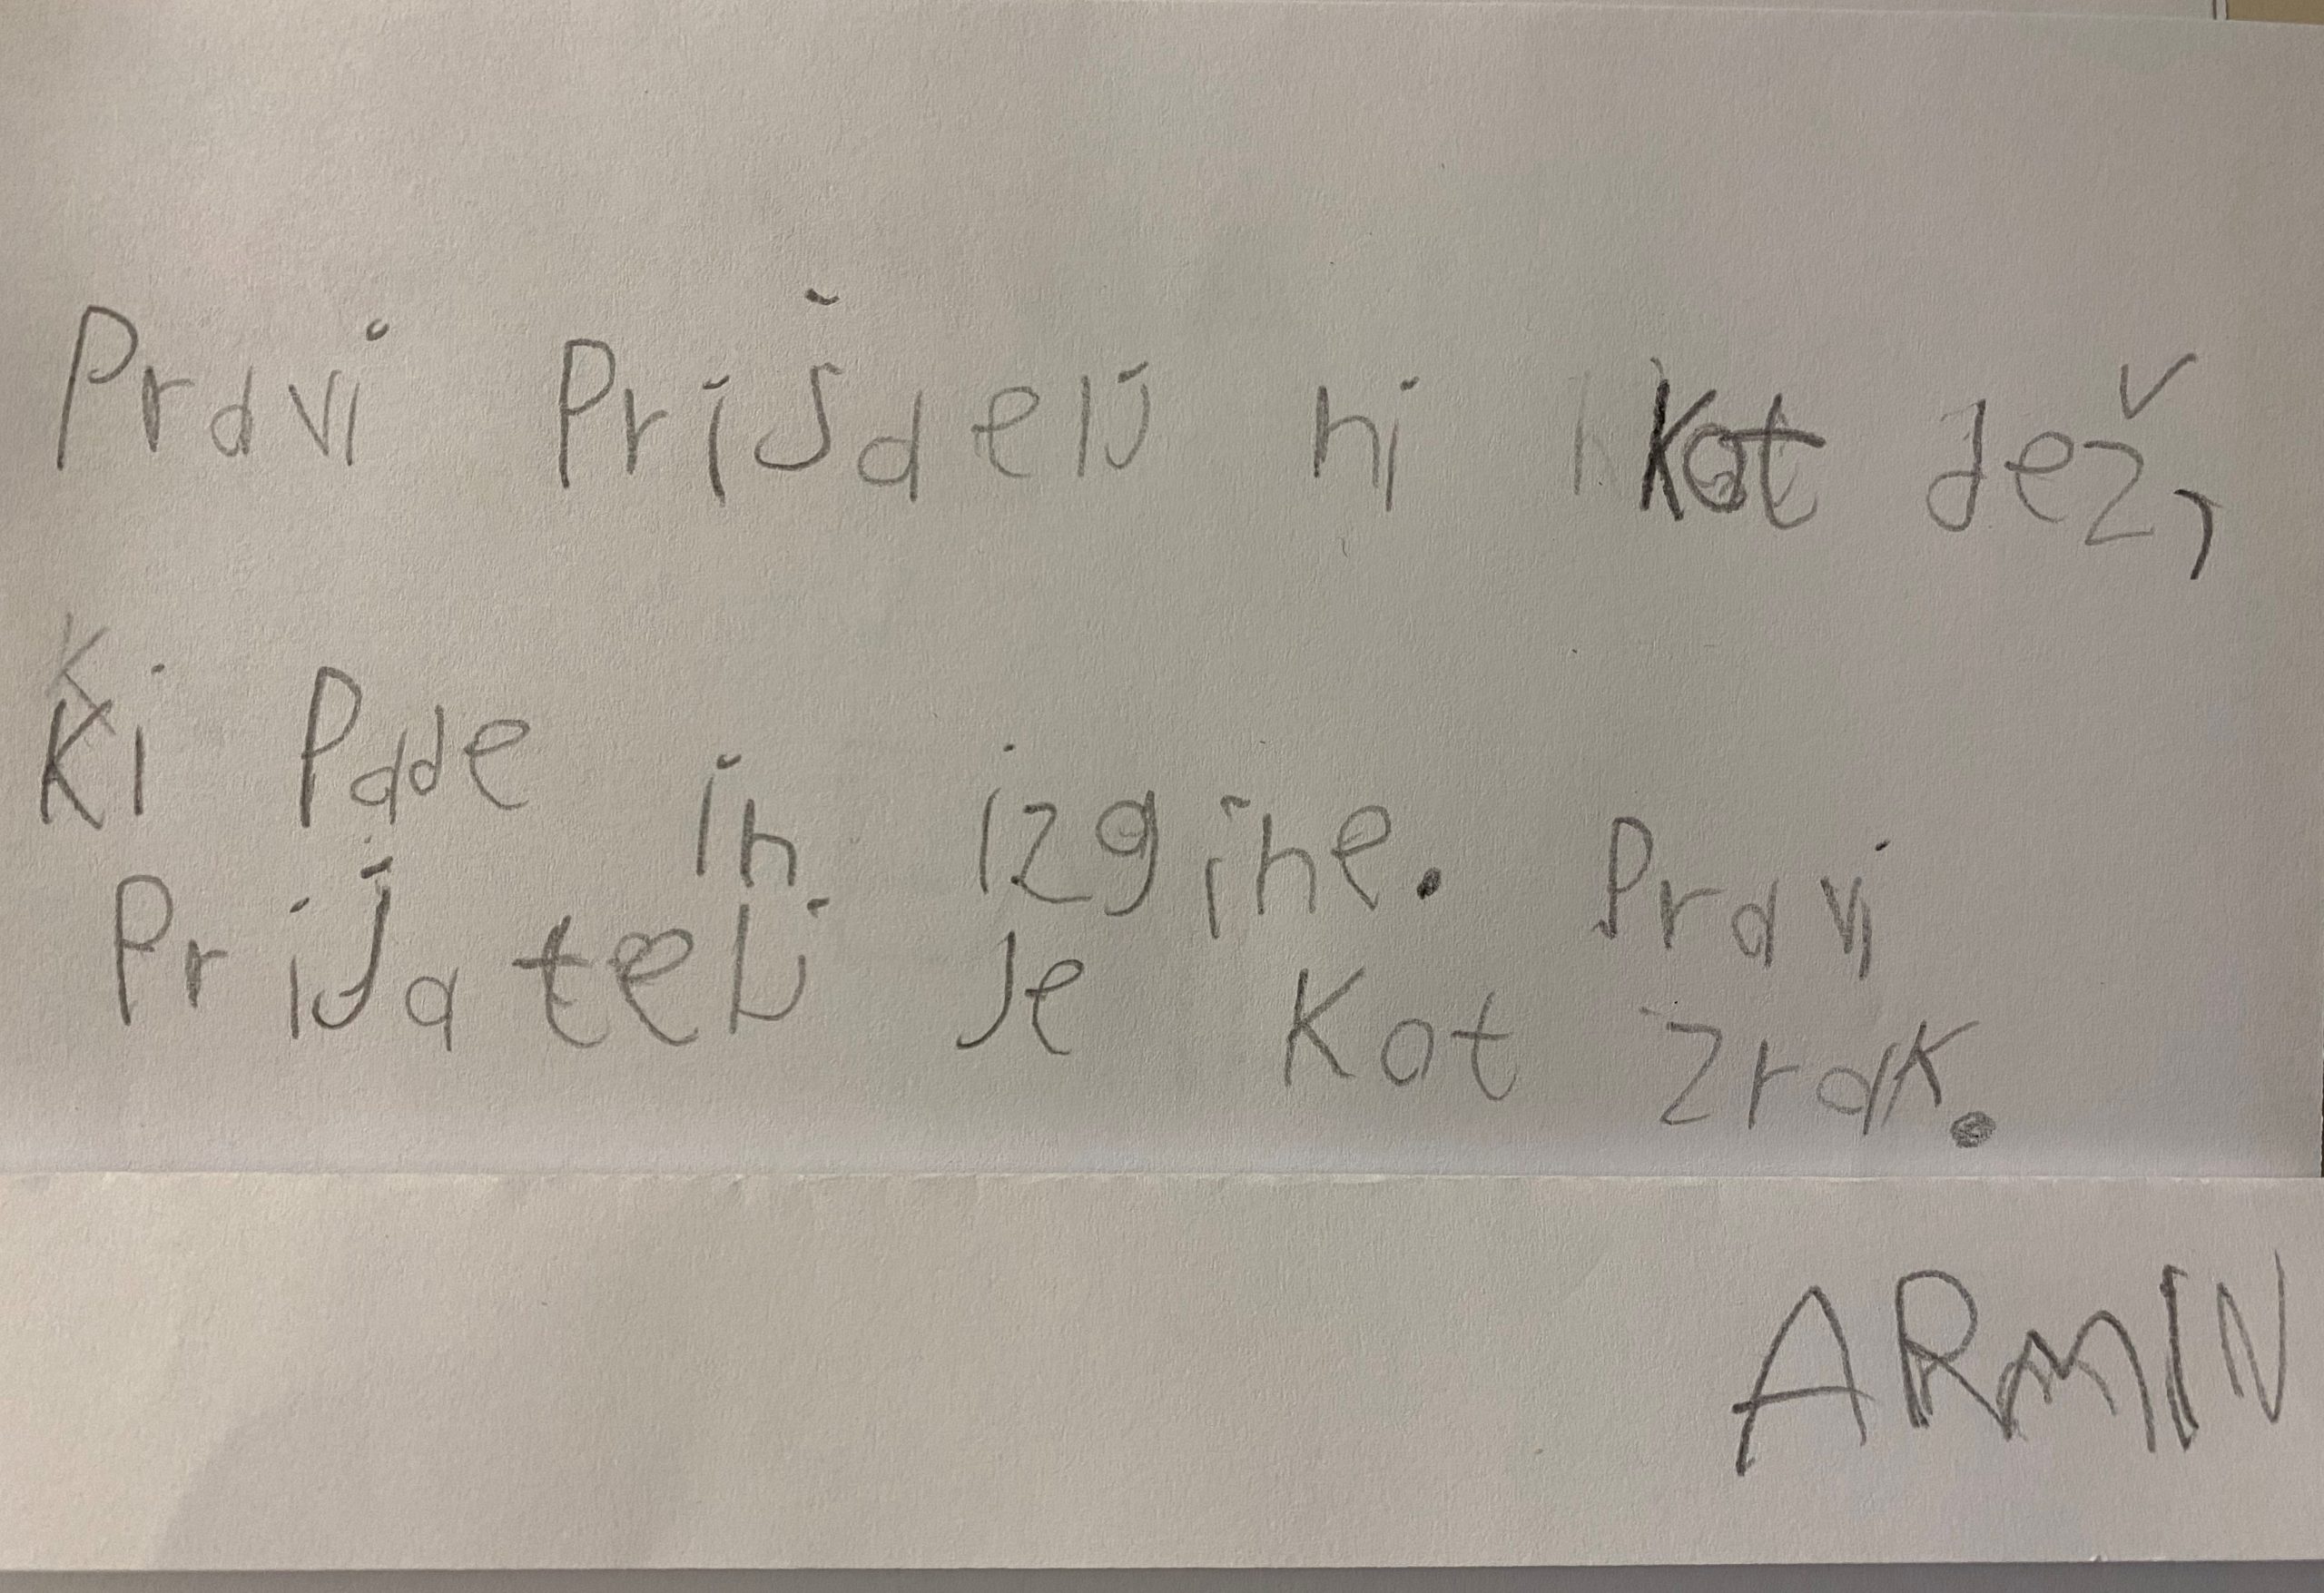 Pravi Prijaelj ni kot dež,
Ki Pade in izgine. Pravi
Prijatelj je kot zrak.
ARMIN